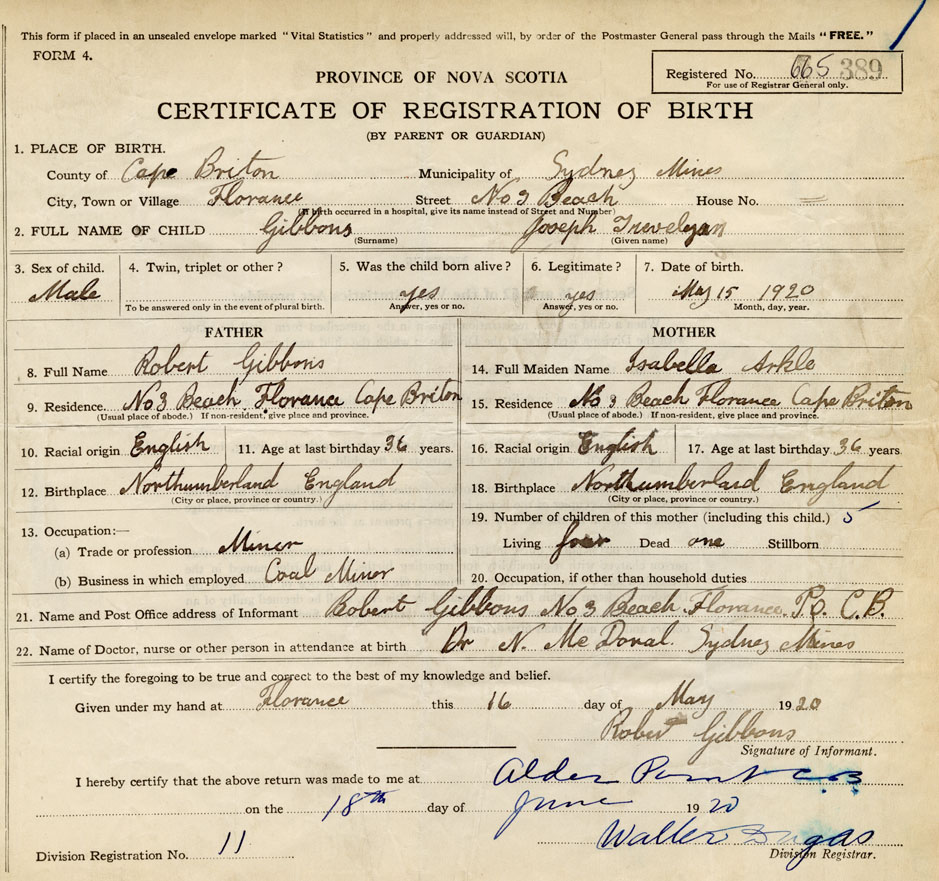 This form if placed in an unsealed envelope marked "Vital Statistics" and properly addressed will, by order of the Postmaster General pass through the Mails "FREE."
FORM 4.
PROVINCE OF NOVA SCOTIA
Registered No. 665 389
For use of Registrar General only.
CERTIFICATE OF REGISTRATION OF BIRTH
(BY PARENT OR GUARDIAN)
1. PLACE OF BIRTH.
County of Cape Briton Municipality of Sydney Mines
City, Town or Village Florance Street No 3 Beach House No. =
(If birth occurred in a hospital, give its name instead of Street and Number)
2. FULL NAME OF CHILD Gibbons Joseph Trevelyan
(Surname) (Given name)
3. Sex of child. 4. Twin, triplet or other? 5. Was the child born alive? 6. Legitimate? 7. Date of birth.
Male yes yes May 15 1920
To be answered only in the event of plural birth. Answer, yes or no. Answer, yes or no. Month, day, year.
FATHER MOTHER
8. Full Name Robert Gibbons
9. Residence. No 3 Beach Florance Cape Briton
(Usual place of abode.) If non-resident, give place and province.
10. Racial origin English 11. Age at last birthday 36 years.
12. Birthplace Northumberland England
(City or place, province or country.)
13. Occupation:—
(a) Trade or profession Miner
(b) Business in which employed Coal Miner
14. Full Maiden Name Isabella Arkle
15. Residence No 3 Beach Florance Cape Briton
(Usual place of abode.) If non-resident, give place and province.
16. Racial origin English 17. Age at last birthday 36 years
18. Birthplace Northumberland England
(City or place, province or country.)
19. Number of children of this mother (including this child.) 5
Living four Dead one Stillborn
20. Occupation, if other than household duties
21. Name and Post Office address of Informant Robert Gibbons No 3 Beach Florance P.o. C.B.
22. Name of Doctor, nurse or other person in attendance at birth Dr N. McDonal Sydney Mines
I certify the foregoing to be true and correct to the best of my knowledge and belief.
Given under my hand at Florance this 16 day of May 1920
Robert Gibbons
Signature of Informant.
I hereby certify that the above return was made to me at Alder Point C.B.
on the 18th day of June 1920
Walter Dugas
Division Registrar.
Division Registration No. 11